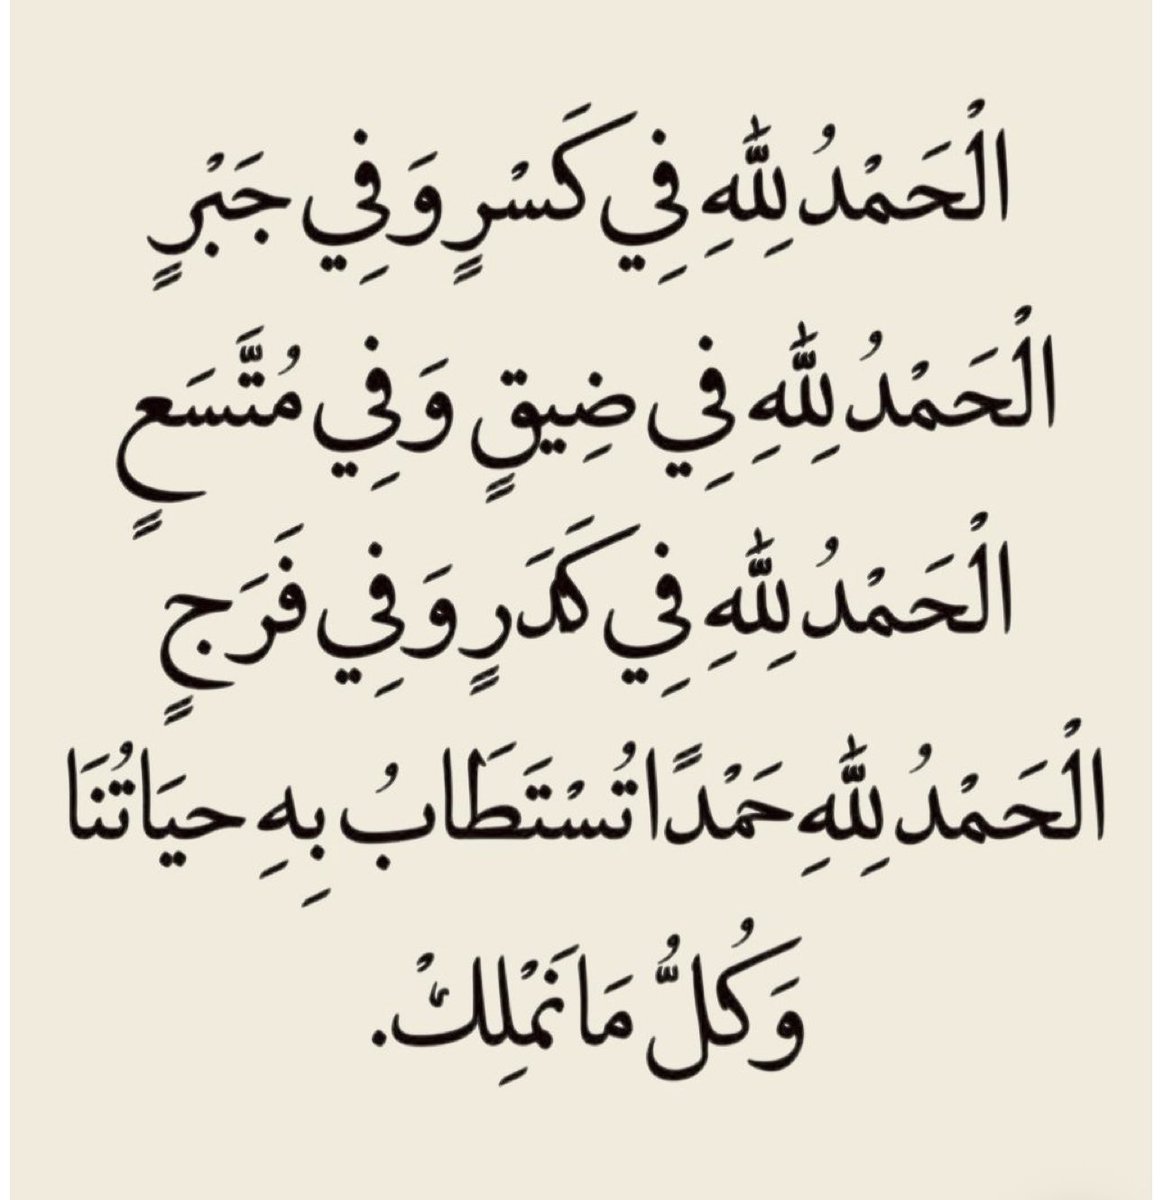 الْحَمْدُ لِلّٰهِ فِي كَسْرٍ وَفِي جَبْرٍ
الْحَمْدُ لِلّٰهِ فِي ضِيقٍ وَفِي مُتَّسَعٍ
الْحَمْدُ لِلّٰهِ فِي كَدَرٍ وَفِي فَرَجٍ
الْحَمْدُ لِلّٰهِ حَمْدًا تُسْتَطَابُ بِهِ حيَاتُنَا
وَكُلُّ مَا نَمْلِكْ.